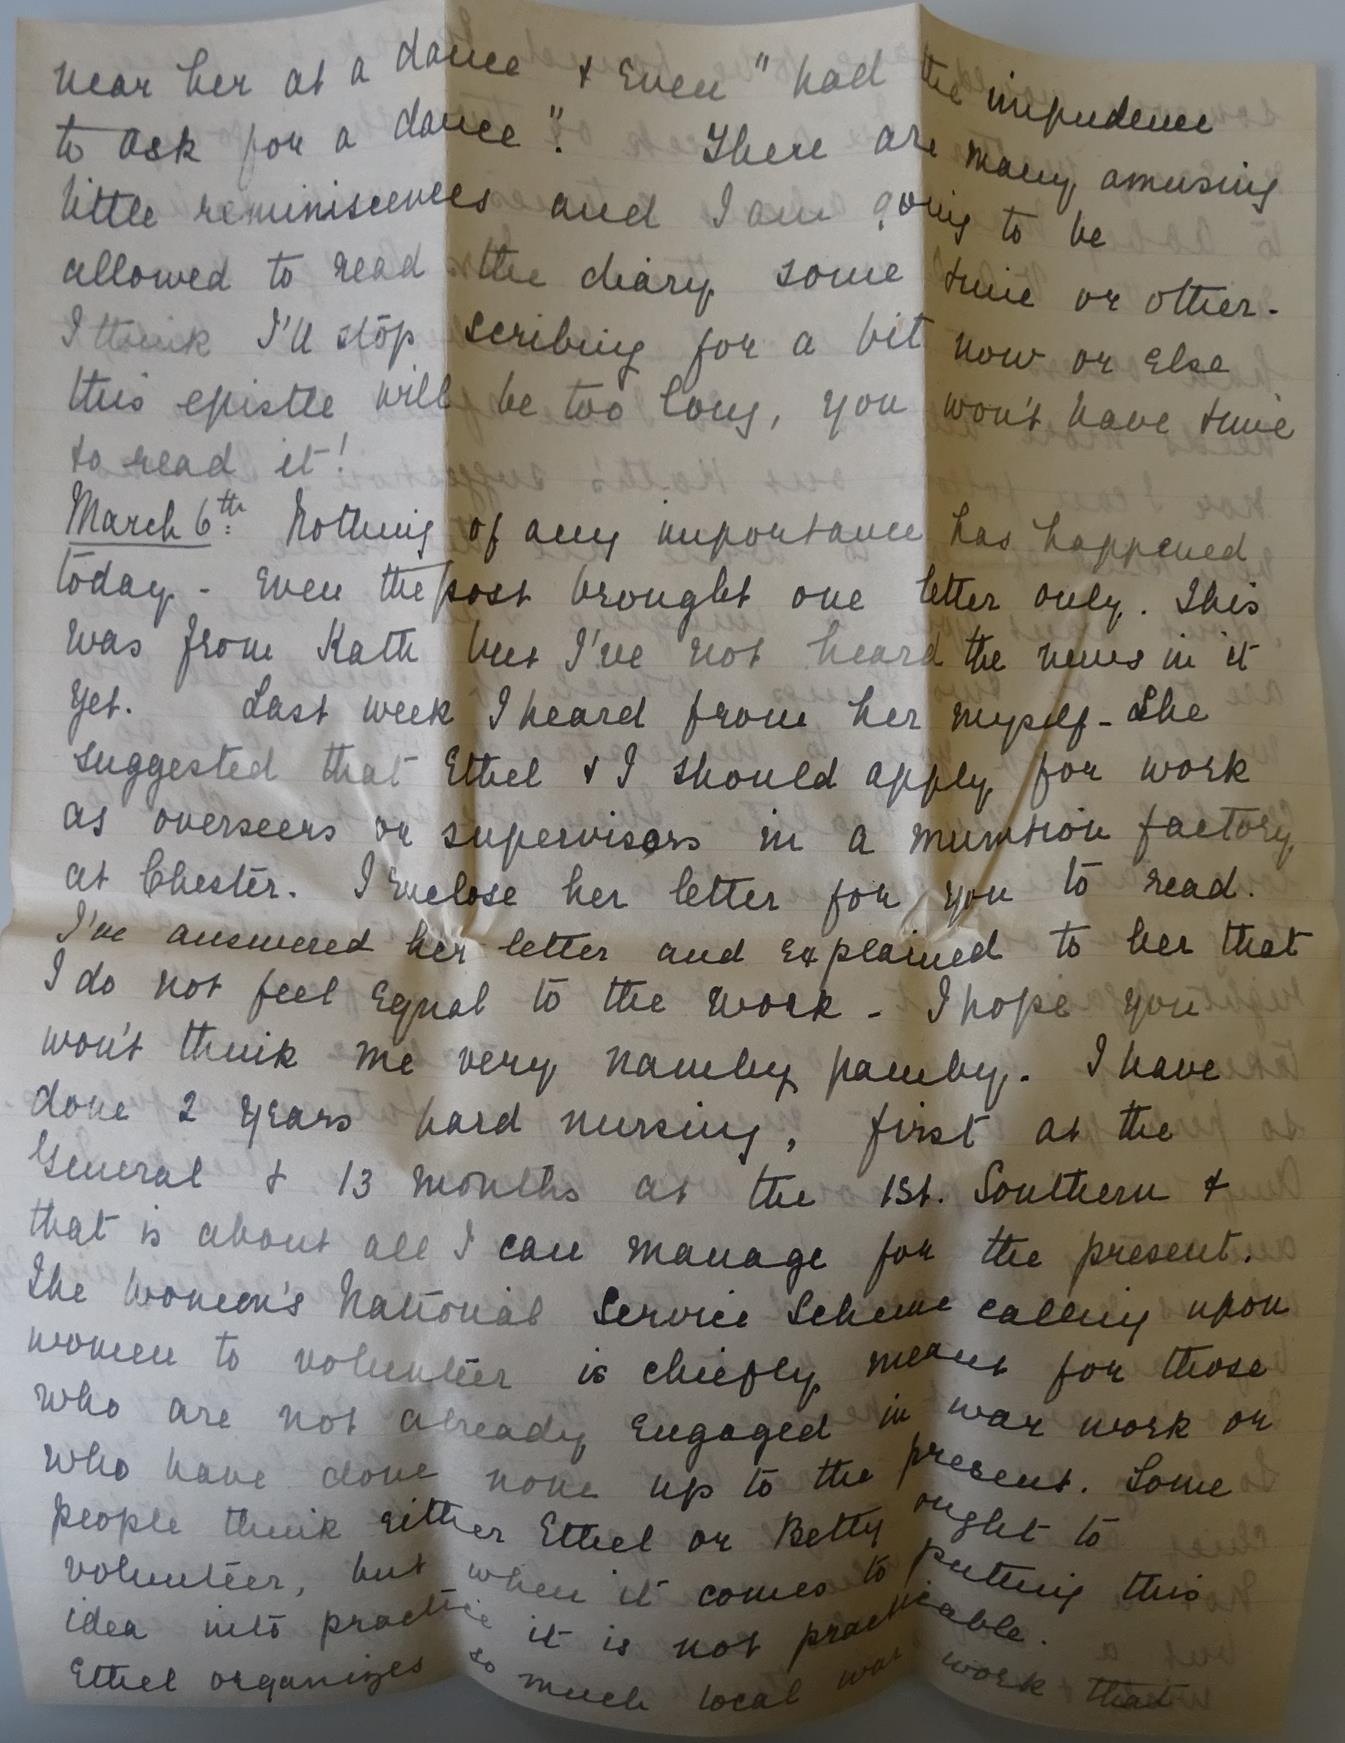 near her at a dance & even "had the impudence
to ask for a dance". There are many amusing
little reminiscences and I am going to be
allowed to read the diary some time or other.
I think I'll stop scribing for a bit now or else
this epistle will be too long, you won't have time
to read it!
March 6th: Nothing of any importance has happened
today - even the post brought one letter only. This
was from Kath but I've not heard the news in it
yet. Last week I heard from her myself - She
suggested that Ethel & I should apply for work
as overseers or supervisors in a munition factory
at Chester. I enclose her letter for you to read.
I've answered her letter and explained to her that
I do not feel equal to the work - I hope you
won't think me very namby pamby. I have
done 2 years hard nursing, first at the
General & 13 months at the 1st. Southern &
that is about all I can manage for the present.
The Women's National Service Scheme calling upon
women to volunteer is chiefly meant for those
who are not already engaged in war work or
who have done none up to the present. Some
people think either Ethel or Betty ought to
volunteer, but when it comes to putting this
idea into practice it is not practicable.
Ethel organizes so much local war work that